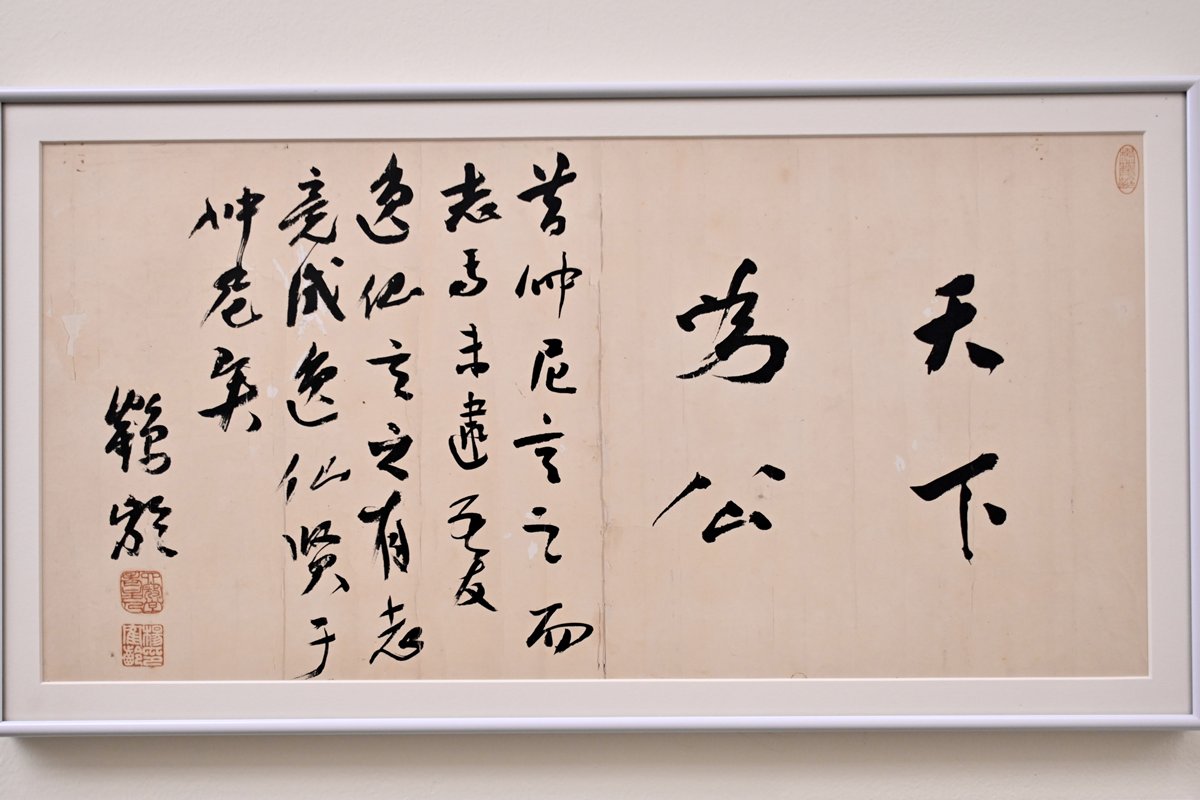 天下
為公
昔仲尼言之而
志焉未逮吾友
逸仙言之有志
竟成逸仙賢于
仲尼矣
鶴齡
楊鶴齡